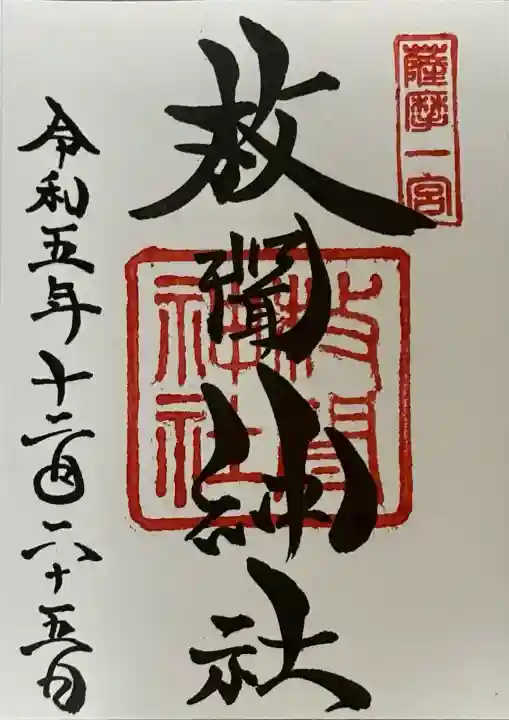 薩摩一宮
枚聞神社
枚聞
神社
令和五年十二月二十五日